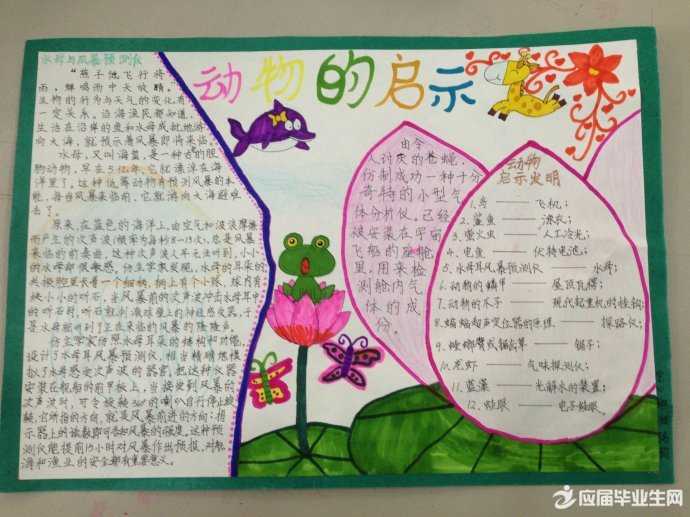 动物的启示
水母与风暴预测仪
"燕子低飞行将
雨，蝉鸣雨中天放晴。"
生物的行为与天气的变化有
一定关系。沿海渔民都知道，
生活在沿岸的鱼和水母成批地游
向大海，就预示着风暴即将来临。
水母，又叫海蜇，是一种古老的腔
肠动物，早在5亿年，它就漂浮在海
洋里了。这种低等动物有预测风暴的本
能，每当风暴来临前，它就游向大海避难
去了。
原来，在蓝色的海洋上，由空气和波浪摩擦
而产生的次声波(频率为每秒8-13次)，总是风暴
来临的前奏曲。这种次声波人耳无法听到，小小
的水母却很敏感。仿生学家发现，水母的耳朵的
共振腔里长着一个细柄，柄上有个小球，球内有
块小小的听石，当风暴前的次声波冲击水母耳中
的听石时，听石就刺激球壁上的神经感受器，于
是水母就听到了正在来临的风暴的隆隆声。
仿生学家仿照水母耳朵的结构和功能，
设计了水母耳风暴预测仪，相当精确地模
拟了水母感受次声波的器官。把这种仪器
安装在舰船的前甲板上，当接受到风暴的
次声波时，可令旋转360°的喇叭自行停止旋
转，它所指的方向，就是风暴前进的方向；指
示器上的读数即可告知风暴的强度。这种预
测仪能提前15小时对风暴作出预报，对航
海和渔业的安全都有重要意义。
由令
人讨厌的苍蝇，
仿制成功一种十分
奇特的小型气
体分析仪。已经
被安装在宇宙
飞船的座舱
里，用来检
测舱内气
体的成
份。
动物
启示发明
1.鸟——飞机；
2.鲨鱼——潜水；
3.萤火虫——人工冷光；
4.电鱼——伏特电池；
5.水母耳风暴预测仪——水母；
6.动物的鳞甲——屋顶瓦楞；
7.动物的爪子——现代起重机的挂钩；
8.蝙蝠超声定位器的原理——探路仪；
9.螳螂臂或锯齿草——锯子；
10.龙虾——气味探测仪；
11.蓝藻——光解水的装置；
12.蛙眼——电子蛙眼。
应届毕业生网